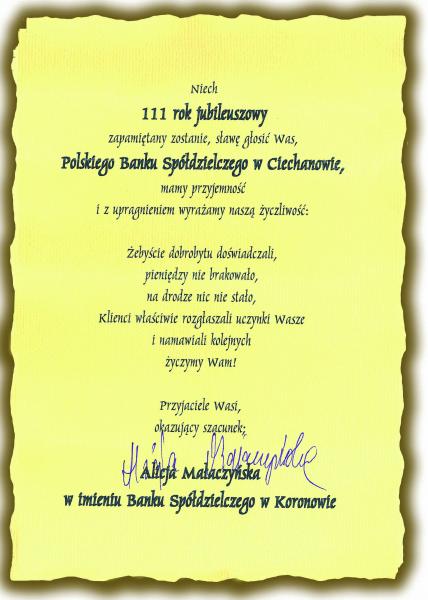 Niech
111 rok jubileuszowy
zapamiętany zostanie, sławę głosić Was,
Polskiego Banku Spółdzielczego w Ciechanowie,
mamy przyjemność
i z upragnieniem wyrażamy naszą życzliwość:
Żebyście dobrobytu doświadczali,
pieniędzy nie brakowało,
na drodze nic nie stało,
Klienci właściwie rozgłaszali uczynki Wasze
i namawiali kolejnych
życzymy Wam!
Przyjaciele Wasi,
okazujący szacunek;
Alicja Małaczyńska
w imieniu Banku Spółdzielczego w Koronowie